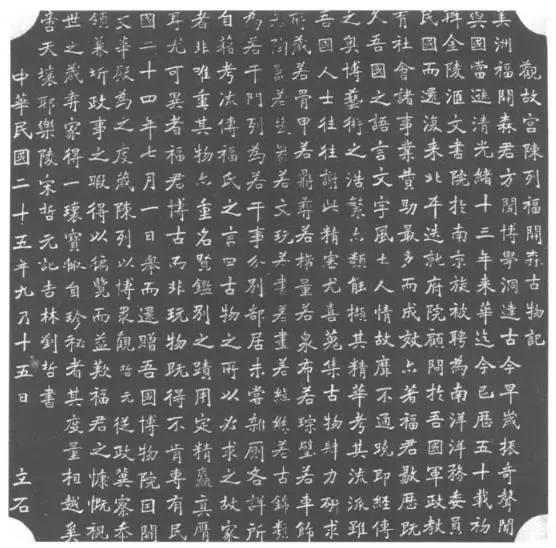 觀故宮陳列福開森古物記
美洲福開森君方聞博學洞達古今早歲振奇聲聞
與國當遜清光緒十三年來華迄今已曆五十載初
掌金陵滙文書院於南京旋被聘為南洋洋務委員
民國而還淩來北平迭就府院顧問於吾國軍政教
育社會諸事業贊助最多而成效亦著福君敭歷既
久吾國之語言文字風土人情故靡不通曉即經傳
之奧博藝術之浩繁亦類能擷其精華考其流派雖
吾國人士往往謝此精塞尤喜蒐集古物肆力研求
所藏若骨甲若鼎彝若權量若泉布若琮璧若車飾
若陶器若瓷若文玩若書若畫若絲綉若古錦類
為若干門列為若干事分別部居未嘗雜廁各詳所
自藉考流傳福氏之言曰古物之所以必求之故家
者非唯重其物亦重名賢鑑別之蹟用定精麤真贋
耳尤可異者福君博古而非玩物既得不肯專有民
國二十四年七月一日舉而還贈吾國博物院因闢
文華殿為之庋藏陳列以博衆觀哲元從政冀察忝
領兼圻政事之暇得以徧覽而益歎福君之慷慨視
世之藏弆家得一瓌寶輒自珍秘者其度量相越奚
啻天壤耶樂陵宋哲元記吉林劉哲書
中華民國二十五年九月十五日　立石